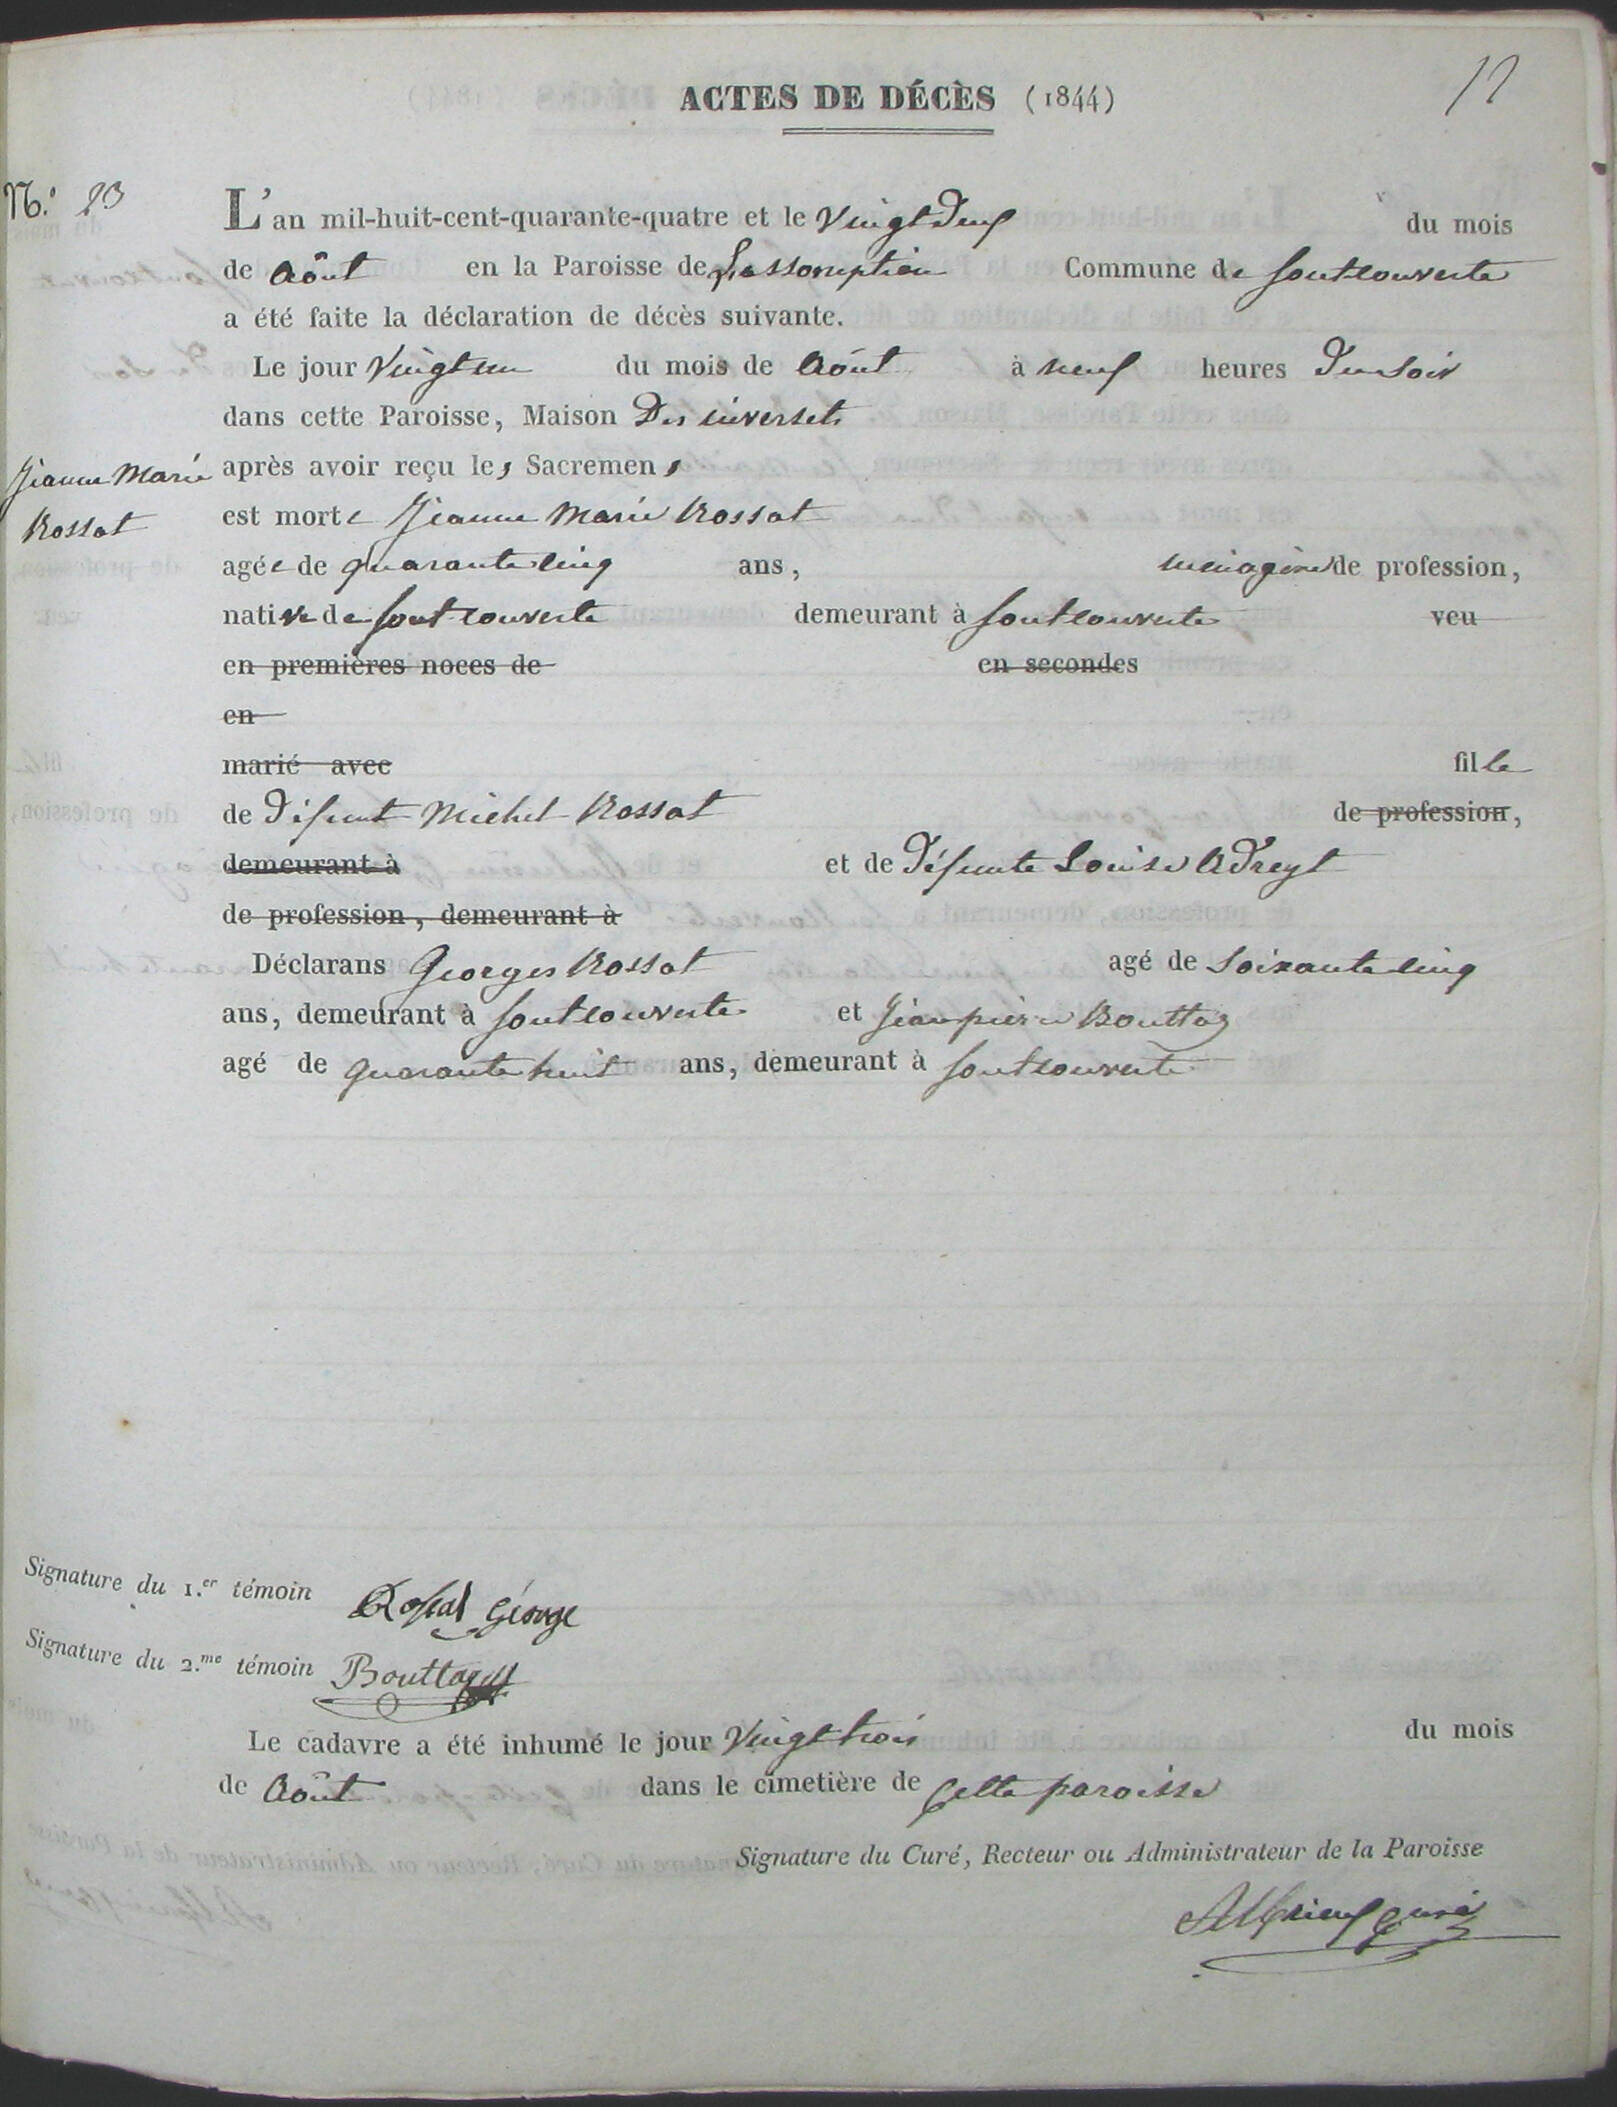 ACTES DE DÉCÈS (1844)
12
N.° 23
L'an mil-huit-cent-quarante-quatre et le vingt deux du mois
de Aôut en la Paroisse de Lassomption Commune de fontcouverte
a été faite la déclaration de décès suivante.
Le jour vingt un du mois de Aôut à neuf heures Du soir
dans cette Paroisse, Maison Des inversets
après avoir reçu les Sacremens
Jeanne Marie
Rossat
est morte Jeanne Marie Rossat
agée de quarante cinq ans, menagère de profession,
native de font-couverte demeurant à fontcouverte veu
en premières noces de en secondes
en
marié avec fille
de Défunt Michel Rossat de profession,
demeurant à et de Défunte Louise Adreyt
de profession, demeurant à
Déclarans Georges Rossat agé de soixante cinq
ans, demeurant à fontcouverte et Jean pierre Bouttaz
agé de quarante huit ans, demeurant à fontcouverte
Signature du 1.er témoin Rossat George
Signature du 2.me témoin Bouttaz
Le cadavre a été inhumé le jour vingt trois du mois
de Aôut dans le cimetière de Cette paroisse
Signature du Curé, Recteur ou Administrateur de la Paroisse
curé